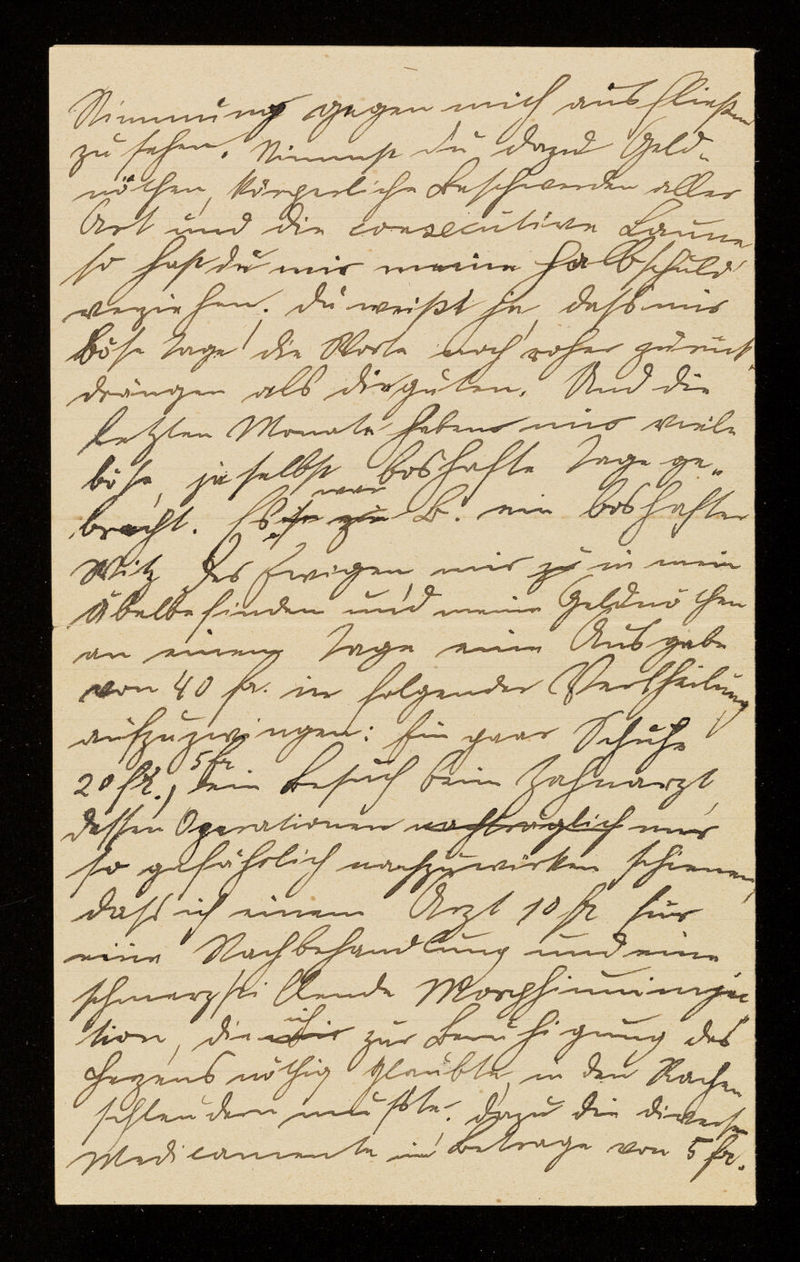 Stimmung gegen mich ausfließen
zu sehen. Nimmst du dazu Geld-
nöthen, körperliche Beschwerden aller
Art und die consecutive Laune
so hast du mir meine Halbschuld
verziehen. Du weißt ja, dass mir
böse Tage die Worte noch roher zurück-
drängen als die guten. Und die
letzten Monate haben mir viele
böse, ja selbst boshafte Tage ge-
bracht. Es war z. B. ein boshafter
Witz des Ewigen, mir zu in mein
Übelbefinden und meine Geldnöthen
an einem Tage eine Ausgabe
von 40 fr. in folgender Vertheilung
aufzuzwingen: Ein paar Schuhe
20 fr., 5 fr ein Besuch beim Zahnarzt,
dessen Operationen nachträglich mir
so gefährlich nachzuwirken schienen,
dass ich einem Arzt 10 fr für
eine Nachbehandlung und eine
schmerzstillende Morphiuminjec-
tion, die ich mir zur Beruhigung des
Herzens nöthig glaubte, in den Rachen
schleudern musste. Dazu die diversen
Medicamente im Betrage von 5 fr.